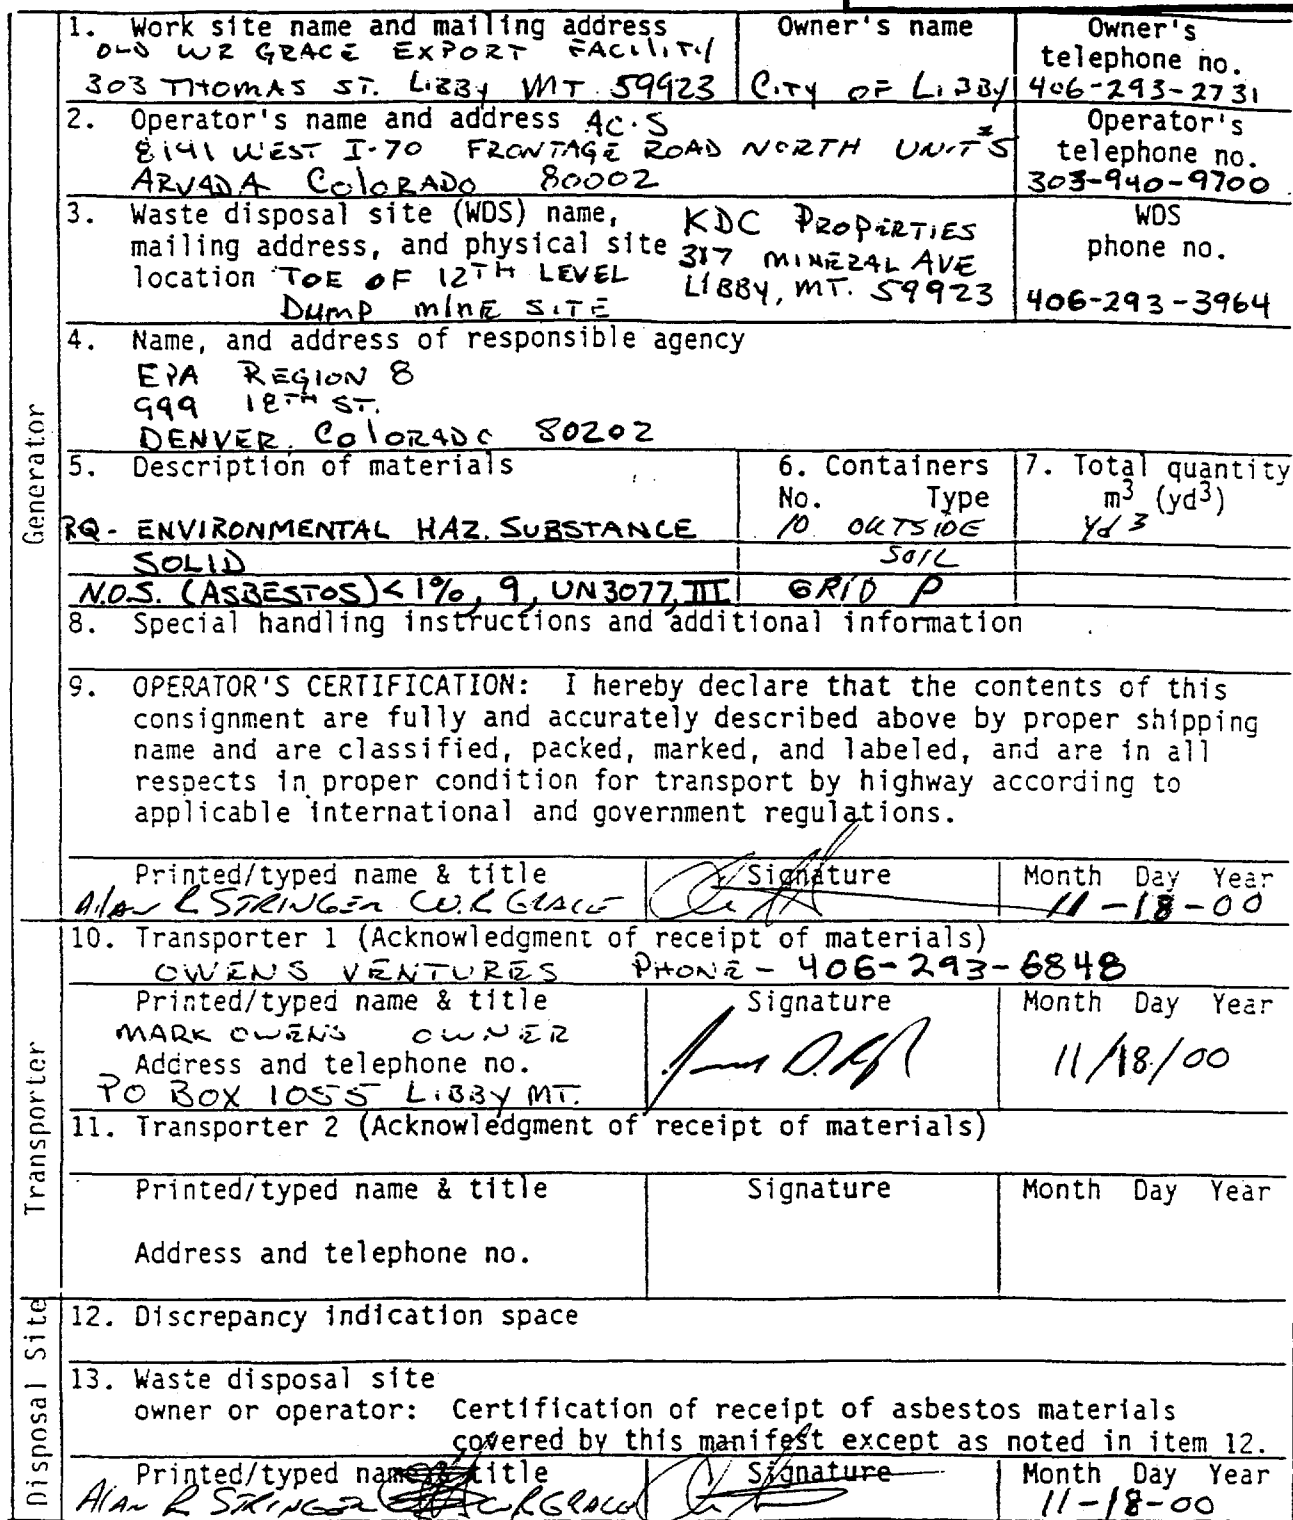 1. Work site name and mailing address
OLD WR GRACE EXPORT FACILITY
303 THOMAS ST. LIBBY MT. 59923
Owner's name
CITY OF LIBBY
Owner's
telephone no.
406-293-2731
2. Operator's name and address AC·S
8141 WEST I-70 FRONTAGE ROAD NORTH UNIT #5
ARVADA COLORADO 80002
Operator's
telephone no.
303-940-9700
3. Waste disposal site (WDS) name,
mailing address, and physical site
location TOE OF 12TH LEVEL
DUMP MINE SITE
KDC PROPERTIES
317 MINERAL AVE
LIBBY, MT. 59923
WDS
phone no.
406-293-3964
4. Name, and address of responsible agency
EPA REGION 8
999 18TH ST.
DENVER, COLORADO 80202
Generator
5. Description of materials
6. Containers
No. Type
7. Total quantity
m³ (yd³)
RQ- ENVIRONMENTAL HAZ. SUBSTANCE
10 OUTSIDE
Yd 3
SOLID
SOIL
N.O.S. (ASBESTOS) <1%, 9, UN3077, III
GRID P
8. Special handling instructions and additional information
9. OPERATOR'S CERTIFICATION: I hereby declare that the contents of this
consignment are fully and accurately described above by proper shipping
name and are classified, packed, marked, and labeled, and are in all
respects in proper condition for transport by highway according to
applicable international and government regulations.
Printed/typed name & title
Alan R STRINGER W.R GRACE
Signature
Month Day Year
11-18-00
Transporter
10. Transporter 1 (Acknowledgment of receipt of materials)
OWENS VENTURES PHONE - 406-293-6848
Printed/typed name & title
MARK OWENS OWNER
Address and telephone no.
PO BOX 1055 LIBBY MT.
Signature
Month Day Year
11/18/00
11. Transporter 2 (Acknowledgment of receipt of materials)
Printed/typed name & title
Signature
Month Day Year
Address and telephone no.
Disposal Site
12. Discrepancy indication space
13. Waste disposal site
owner or operator: Certification of receipt of asbestos materials
covered by this manifest except as noted in item 12.
Printed/typed name & title
Alan R STRINGER W.R GRACE
Signature
Month Day Year
11-18-00